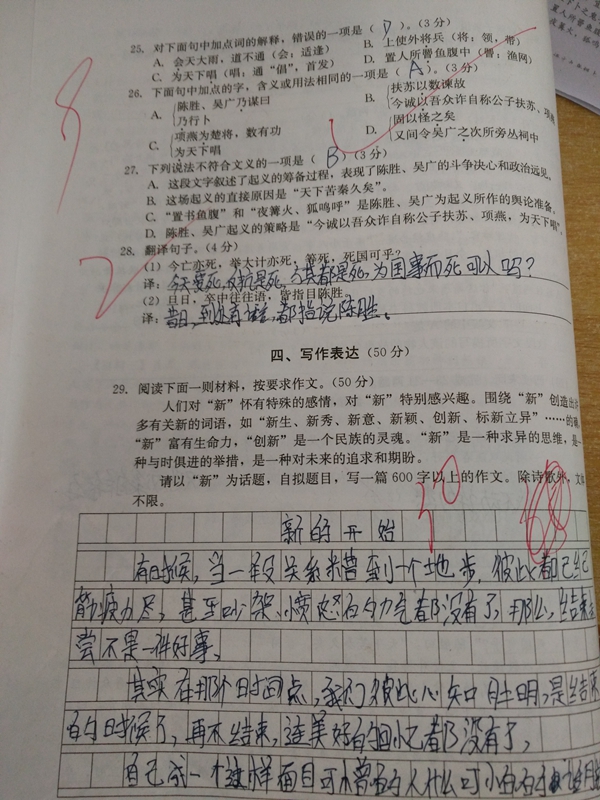 25. 对下面句中加点词的解释，错误的一项是（ D ）。（3分）
A. 会天大雨，道不通（会：适逢）
B. 上使外将兵（将：领，带）
C. 为天下唱（唱：通“倡”，首发）
D. 置人所罾鱼腹中（罾：渔网）
26. 下面句中加点的字，含义或用法相同的一项是（ A ）。（3分）
A. 陈胜、吴广乃谋曰
乃行卜
B. 扶苏以数谏故
今诚以吾众诈自称公子扶苏、项燕
C. 项燕为楚将，数有功
为天下唱
D. 固以怪之矣
又间令吴广之次所旁丛祠中
27. 下列说法不符合文义的一项是（ B ）（3分）
A. 这段文字叙述了起义的筹备过程，表现了陈胜、吴广的斗争决心和政治远见。
B. 这场起义的直接原因是“天下苦秦久矣”。
C. “置书鱼腹”和“夜篝火、狐鸣呼”是陈胜、吴广为起义所作的舆论准备。
D. 陈胜、吴广起义的策略是“今诚以吾众诈自称公子扶苏、项燕，为天下唱”。
28. 翻译句子。（4分）
（1）今亡亦死，举大计亦死，等死，死国可乎？
译：今天要死，反抗是死，都是死，为国事而死可以吗？
（2）旦日，卒中往往语，皆指目陈胜。
译：昔日，到处有，都指说陈胜。
8
2
四、写作表达（50分）
29. 阅读下面一则材料，按要求作文。（50分）
人们对“新”怀有特殊的感情，对“新”特别感兴趣。围绕“新”创造出许
多有关新的词语，如“新生、新秀、新意、新颖、创新、标新立异”……的确
“新”富有生命力，“创新”是一个民族的灵魂。“新”是一种求异的思维，是一
种与时俱进的举措，是一种对未来的追求和期盼。
请以“新”为话题，自拟题目，写一篇600字以上的作文。除诗歌外，文体
不限。
新的开始
有时候，当一段关系糟到一个地步，彼此都已经
筋疲力尽，甚至吵架、愤怒的力气都没有了，那么，结束
尝不是一件好事。
其实在那个时间点，我们彼此心知肚明，是结束
的时候了，再不结束，连美好的回忆都没有了，
自己成一个这样面目可憎的人什么可